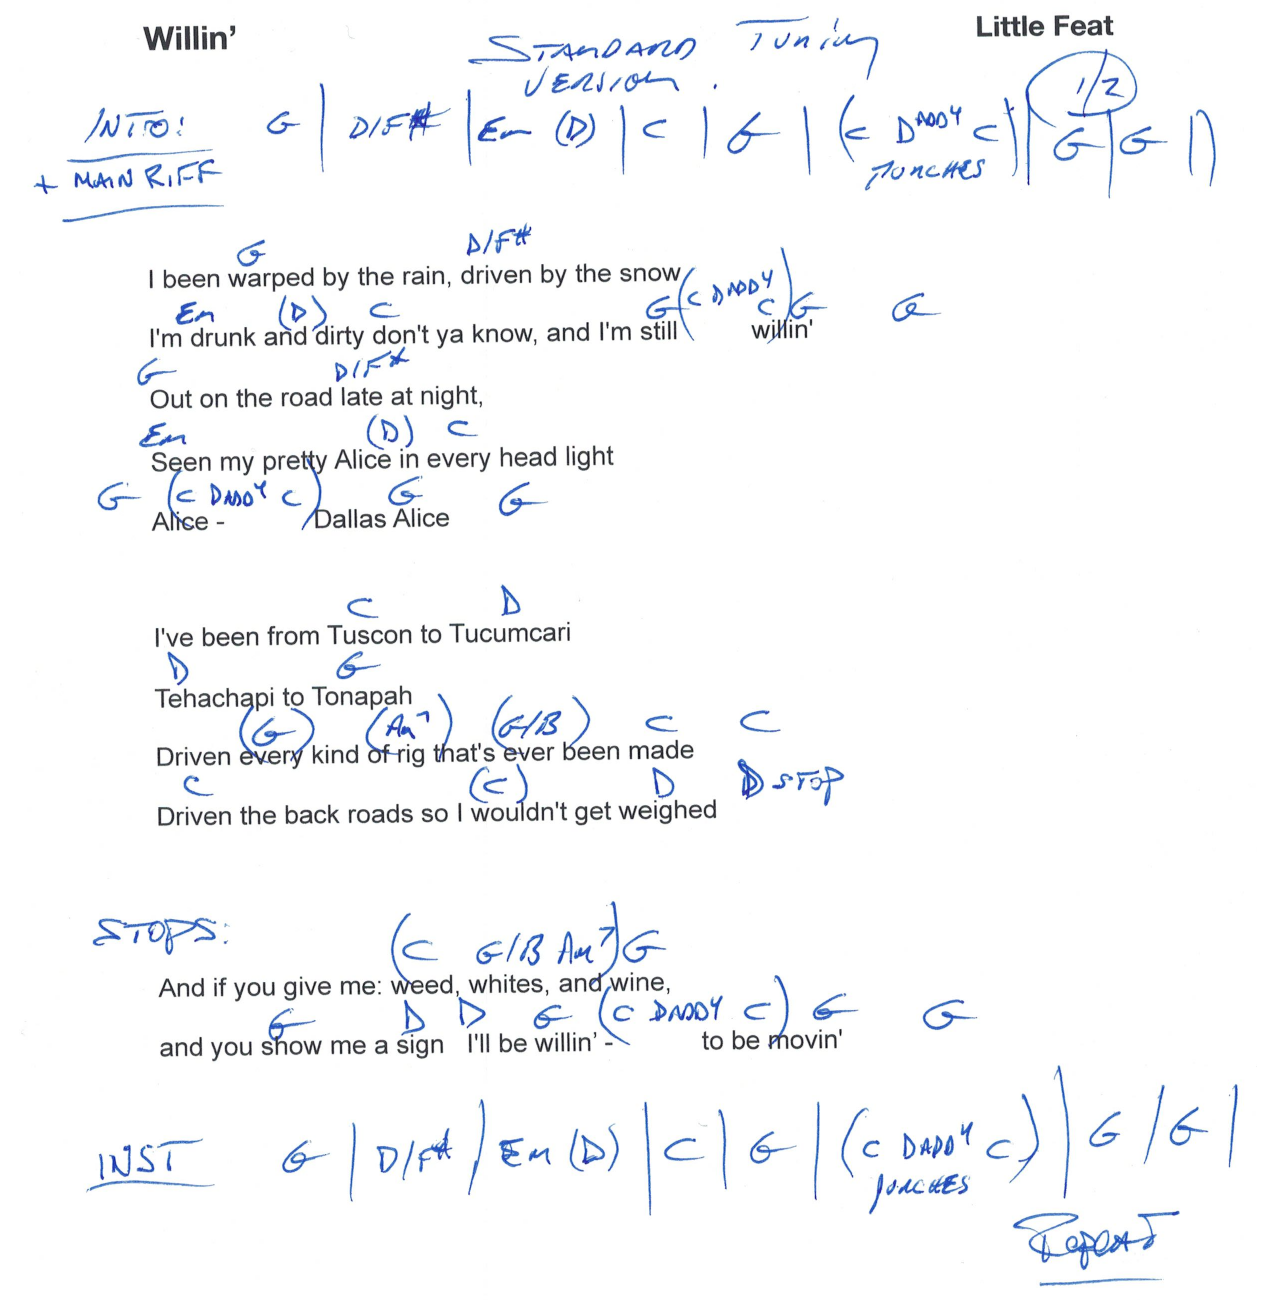 Willin’ Little Feat
STANDARD TUNING
VERSION.
INTO: G | D/F# | Em (D) | C | G | (C DADDY C) | G | G |
1/2
+ MAIN RIFF PUNCHES
G D/F#
I been warped by the rain, driven by the snow
Em (D) C G (C DADDY C) G G
I'm drunk and dirty don't ya know, and I'm still willin'
G D/F#
Out on the road late at night,
Em (D) C
Seen my pretty Alice in every head light
G (C DADDY C) G G
Alice - Dallas Alice
C D
I've been from Tuscon to Tucumcari
D G
Tehachapi to Tonapah
(G) (Am7) (G/B) C C
Driven every kind of rig that's ever been made
C (C) D D STOP
Driven the back roads so I wouldn't get weighed
STOPS: (C G/B Am7) G
And if you give me: weed, whites, and wine,
G D D G (C DADDY C) G G
and you show me a sign I'll be willin' - to be movin'
INST G | D/F# | Em (D) | C | G | (C DADDY C) | G | G |
PUNCHES
Repeat